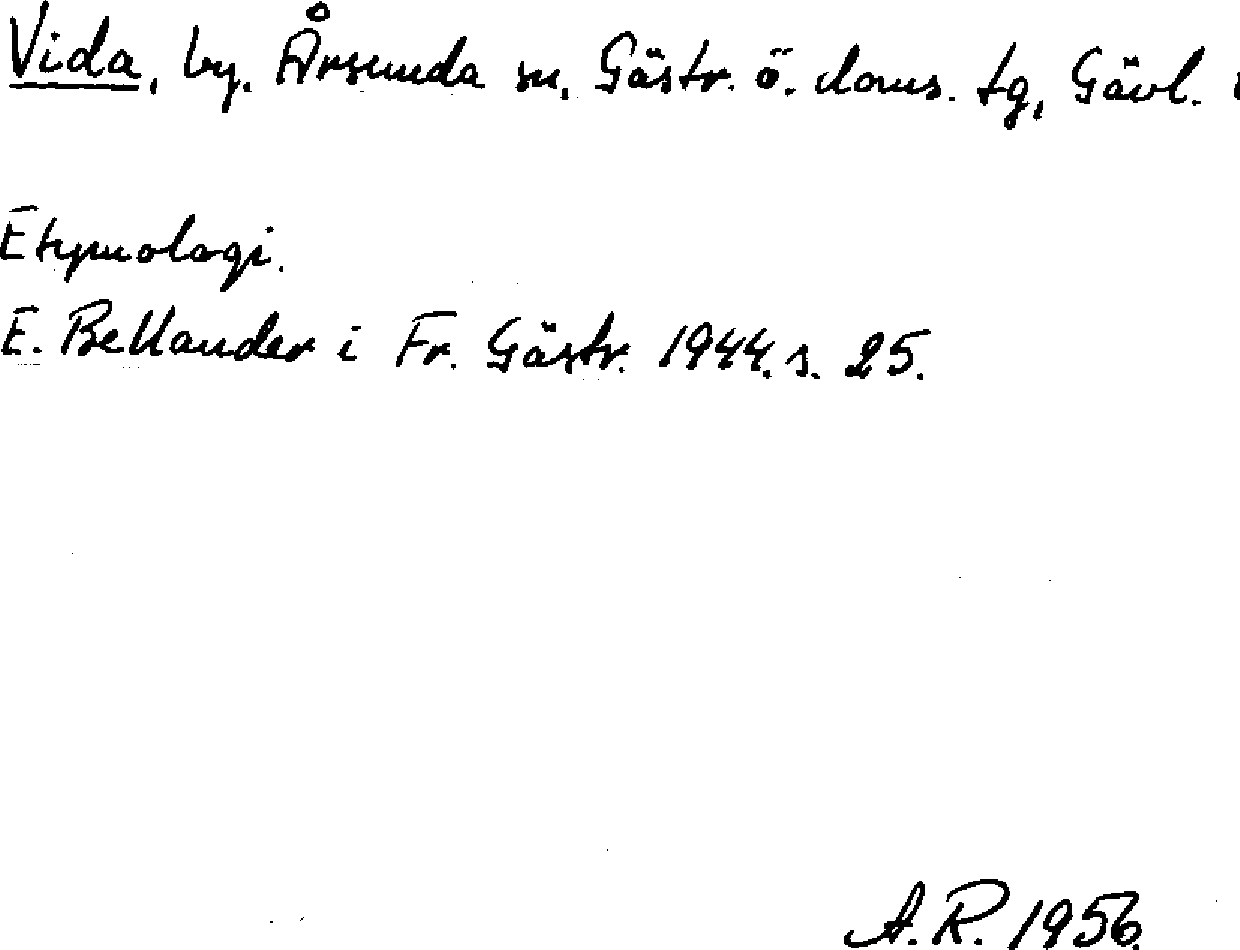 Vida, by. Årsunda sn, Gästr. ö. doms. tg, Gävl.
Etymologi.
E. Bellander i Fr. Gästr. 1944. s. 25.
A.R. 1956.